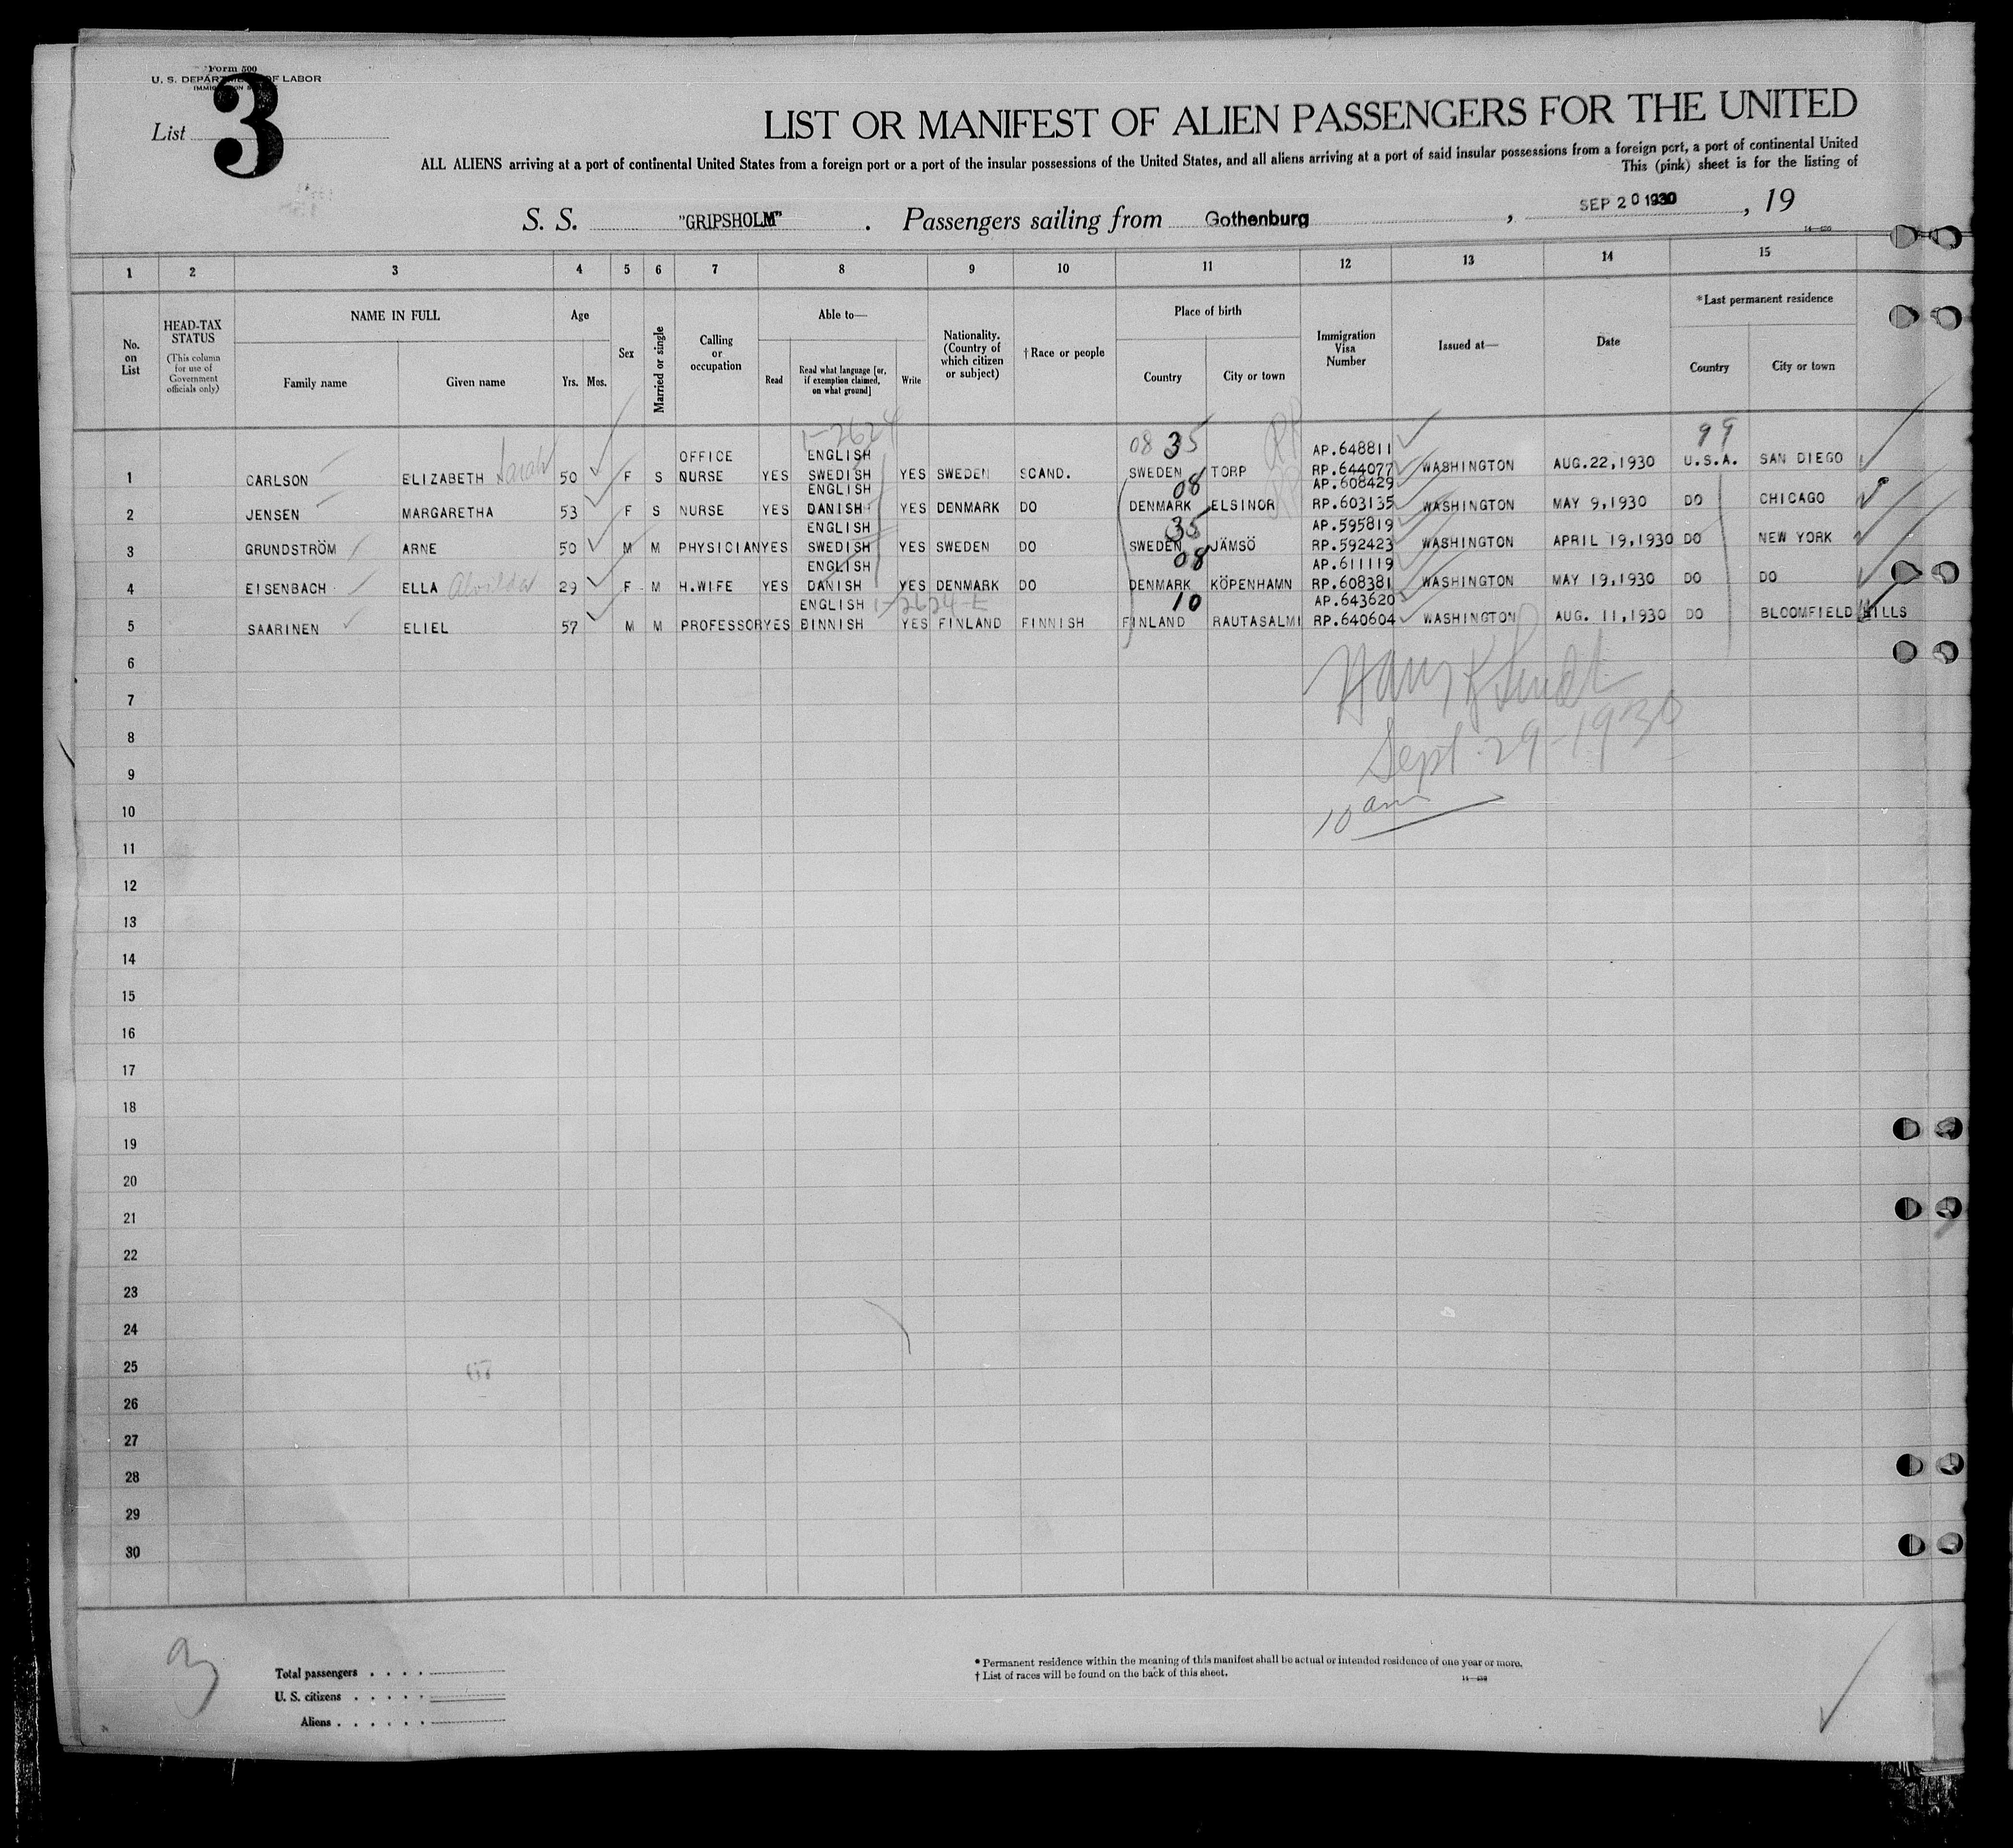 Form 500
U. S. DEPARTMENT OF LABOR
List 3
LIST OR MANIFEST OF ALIEN PASSENGERS FOR THE UNITED
ALL ALIENS arriving at a port of continental United States from a foreign port or a port of the insular possessions of the United States, and all aliens arriving at a port of said insular possessions from a foreign port, a port of continental United
This (pink) sheet is for the listing of
S. S. "GRIPSHOLM". Passengers sailing from Gothenburg, SEP 20 1930, 19
1 2 3 4 5 6 7 8 9 10 11 12 13 14 15
No. on List
HEAD-TAX STATUS (This column for use of Government officials only)
NAME IN FULL
Family name Given name
Age
Yrs. Mos.
Sex
Married or single
Calling or occupation
Able to—
Read Read what language [or, if exemption claimed, on what ground] Write
Nationality. (Country of which citizen or subject)
†Race or people
Place of birth
Country City or town
Immigration Visa Number
Issued at—
Date
*Last permanent residence
Country City or town
1-2624 08 35 99
OFFICE ENGLISH AP.648811
1 CARLSON ELIZABETH Sarah 50 F S NURSE YES SWEDISH YES SWEDEN SCAND. SWEDEN TORP RP.644077 WASHINGTON AUG.22,1930 U.S.A. SAN DIEGO
ENGLISH 08 AP.608429
2 JENSEN MARGARETHA 53 F S NURSE YES DANISH YES DENMARK DO DENMARK ELSINOR RP.603135 WASHINGTON MAY 9,1930 DO CHICAGO
ENGLISH 35 AP.595819
3 GRUNDSTRÖM ARNE 50 M M PHYSICIAN YES SWEDISH YES SWEDEN DO SWEDEN JÄMSÖ RP.592423 WASHINGTON APRIL 19,1930 DO NEW YORK
ENGLISH 08 AP.611119
4 EISENBACH ELLA Alvilda 29 F M H.WIFE YES DANISH YES DENMARK DO DENMARK KÖPENHAMN RP.608381 WASHINGTON MAY 19,1930 DO DO
ENGLISH 1-2624-E 10 AP.643620
5 SAARINEN ELIEL 57 M M PROFESSOR YES BINNISH YES FINLAND FINNISH FINLAND RAUTASALMI RP.640604 WASHINGTON AUG. 11,1930 DO BLOOMFIELD HILLS
6
7
8 Sept. 29-1930
9
10 10 am
11
12
13
14
15
16
17
18
19
20
21
22
23
24
25
26
27
28
29
30
Total passengers
U. S. citizens
Aliens
* Permanent residence within the meaning of this manifest shall be actual or intended residence of one year or more.
† List of races will be found on the back of this sheet.